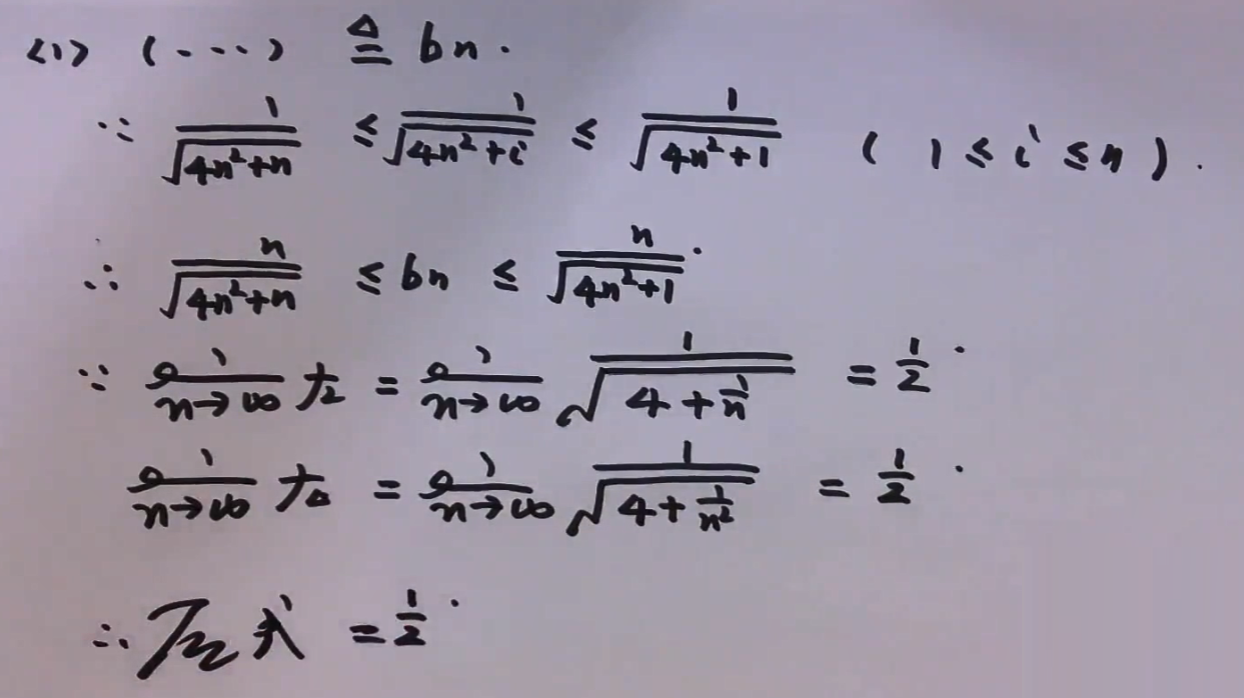 <1> (----) ≜ bn.
∵ 1/√(4n²+n) ≤ 1/√(4n²+i) ≤ 1/√(4n²+1) ( 1 ≤ i ≤ n ).
∴ n/√(4n²+n) ≤ bn ≤ n/√(4n²+1).
∵ lim n→∞ 左 = lim n→∞ 1/√(4+1/n) = 1/2.
lim n→∞ 右 = lim n→∞ 1/√(4+1/n²) = 1/2.
∴ 原式 = 1/2.